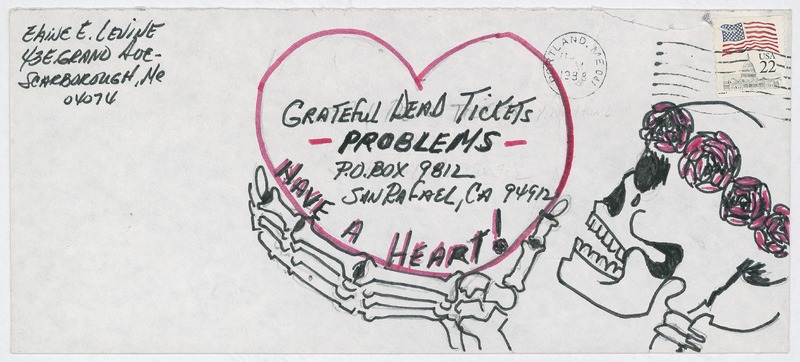 Elaine E. Levine
43 E. Grand Ave-
Scarborough, Me
04074
Grateful Dead Tickets
- PROBLEMS -
P.O. Box 9812
San Rafael, CA 94912
HAVE A HEART!
PORTLAND, ME 041
1988
USA
22